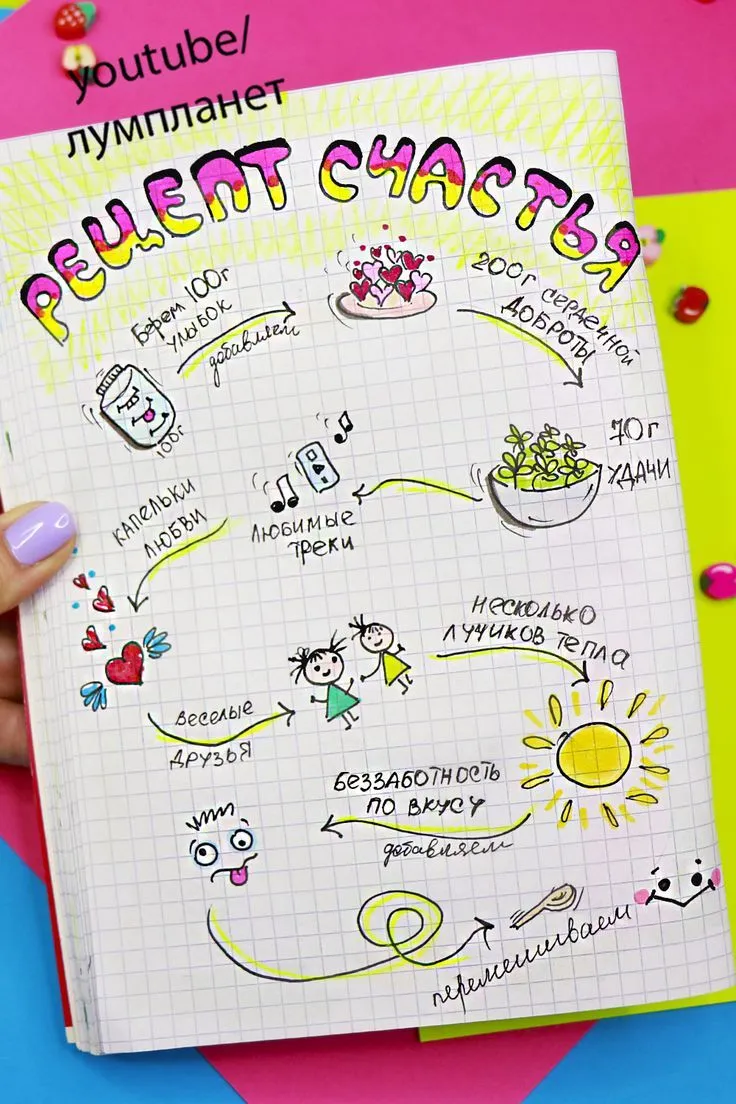 youtube/
лумпланет
РЕЦЕПТ СЧАСТЬЯ
Берем 100г
УЛЫБОК
добавляем
100г
200г СЕРДЕЧНОЙ
ДОБРОТЫ
70г
УДАЧИ
ЛЮБИМЫЕ
ТРЕКИ
КАПЕЛЬКИ
ЛЮБВИ
ВЕСЕЛЫЕ
ДРУЗЬЯ
НЕСКОЛЬКО
ЛУЧИКОВ ТЕПЛА
БЕЗЗАБОТНОСТЬ
ПО ВКУСУ
добавляем
перемешиваем